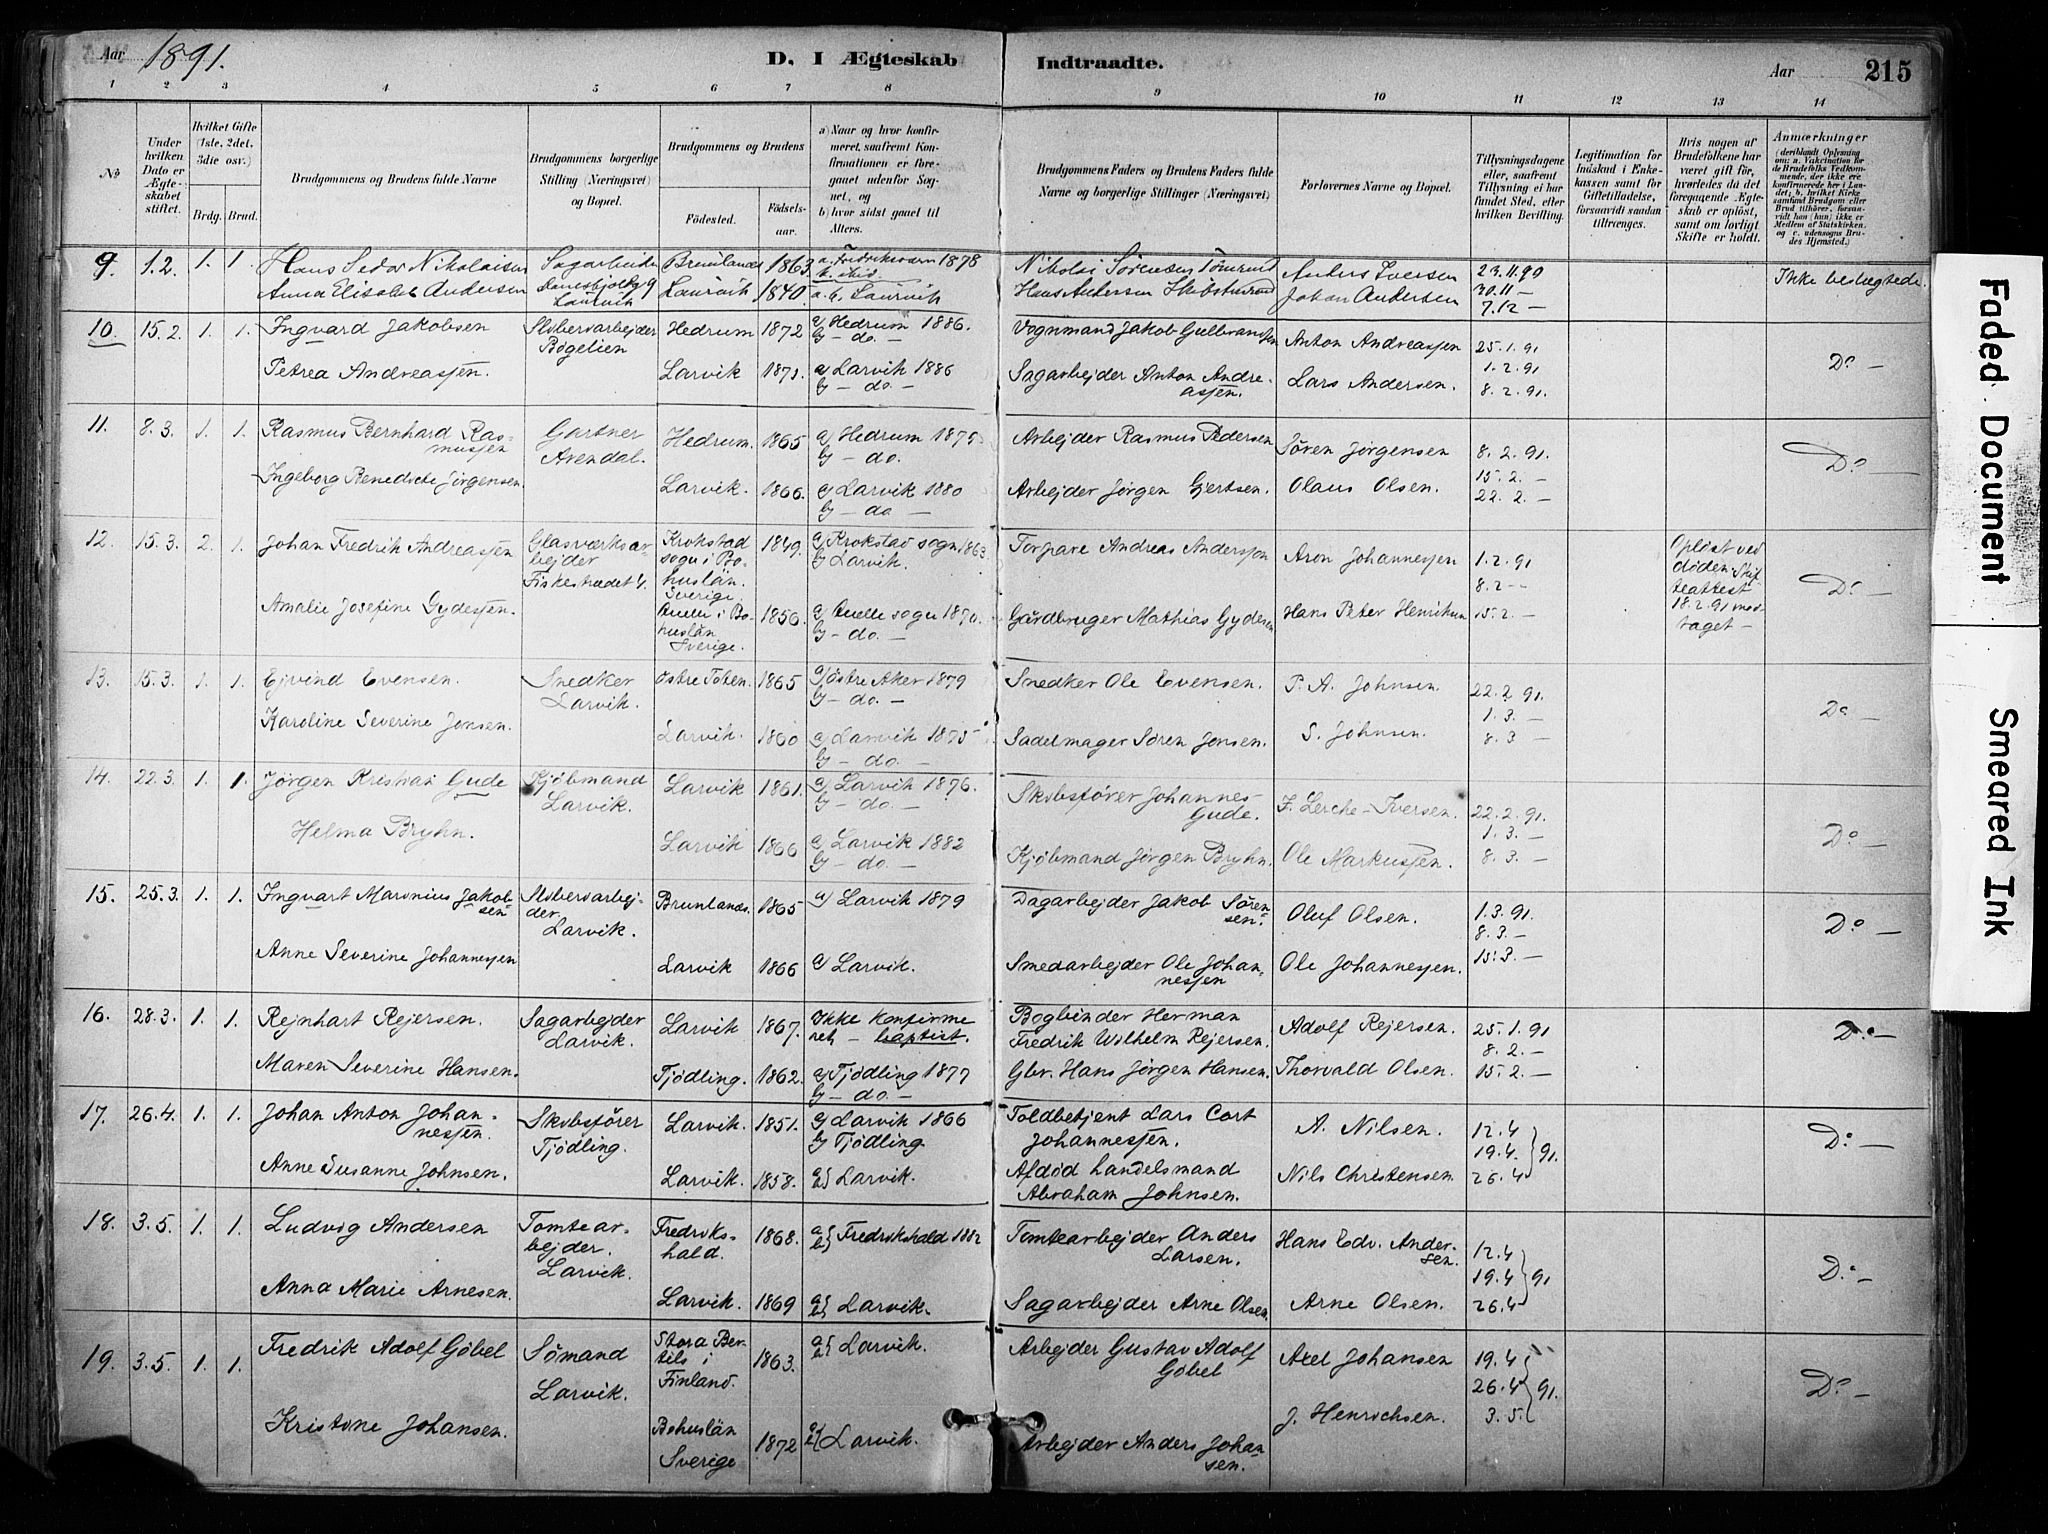 Aar 1891.
D. I Ægteskab Indtraadte.
Aar 215
1 2 3 4 5 6 7 8 9 10 11 12 13 14
No
Under hvilken Dato er Ægteskabet stiftet.
Hvilket Gifte (1ste, 2det, 3die osv.)
Brdg. Brud.
Brudgommens og Brudens fulde Navne
Brudgommens borgerlige Stilling (Næringsvei) og Bopæl.
Brudgommens og Brudens
Fødested. Fødselsaar.
a) Naar og hvor konfirmeret, saafremt Konfirmationen er foregaaet udenfor Sognet, og
b) hvor sidst gaaet til Alters.
Brudgommens Faders og Brudens Faders fulde Navne og borgerlige Stillinger (Næringsvei)
Forlovernes Navne og Bopæl.
Tillysningsdagene eller, saafremt Tillysning ei har fundet Sted, efter hvilken Bevilling.
Legitimation for Indskud i Enkekassen samt for Giftetilladelse, forsaavidt saadan tiltrænges.
Hvis nogen af Brudefolkene har været gift før, hvorledes da det foregaaende Ægteskab er opløst, samt om lovligt Skifte er holdt.
Anmærkninger (deriblandt Oplysning om: a. Vaccination for de Brudefolks Vedkommende, der ikke ere konfirmerede her i Landet; b. hvilket Kirkesamfund Brudgom eller Brud tilhører, forsaavidt han (hun) ikke er Medlem af Statskirken, og c. udensogns Brudes Hjemsted.)
9. 1.2. 1. 1. Hans Sedor Nikolaisen Sagarbeider Brunlanes 1863 a. Fredriksværn 1878 Nikolai Sørensen Anders Iversen 23.11.90 Ikke beslægtede.
Anna Elisabet Andersen Laurvik Laurvik 1840 a. b. Laurvik Hans Andersen Johan Andersen 30.11 –
7.12 –
10. 15.2. 1. 1. Ingvard Jakobsen Stoberoarbejder Bøgelien Hedrum 1872 a) Hedrum 1886. b) – do. – Vognmand Jakob Gulbrandsen Anton Andreassen 25.1.91 Do –
Petrea Andreassen. Larvik 1871. a) Larvik 1886 b) – do. – Sagarbejder Anton Andreassen. Lars Andersen. 1.2.91
8.2.91.
11. 8.3. 1. 1. Rasmus Bernhard Rasmussen Gartner Arendal. Hedrum. 1865 a) Hedrum 1875 b) – do. Arbejder Rasmus Pedersen Søren Jørgensen 8.2.91. Do –
Ingeborg Benedicte Jørgensen. Larvik. 1866. a) Larvik 1880 b) – do – Arbejder Jørgen Gjertsen. Olaus Olsen. 15.2. –
22.2. –
12. 15.3. 2. 1. Johan Fredrik Andreassen Glasværksarbejder Fiskestrædet 4. Krokstad sogn i Bohuslän. Sverige. 1849. a) Krokstad sogn 1863. b) Larvik. Torpare Andreas Andersson Aron Johannessen 1.2.91 Opløst ved døden. Skifteattest 18.2.91 modtaget – Do –
8.2 –
Amalie Josefine Gydessen. Quelle i Bohuslän. Sverige. 1856. a) Quelle sogn 1870. b) – do. – Gårdbruger Mathias Gydesen Hans Peter Henriksen 15.2. –
13. 15.3. 1. 1. Ejvind Evensen. Snedker Larvik. Østre Toten. 1865 a) Østre Aker 1879 b) – do. – Snedker Ole Evensen. P. A. Johnsen. 22.2.91. Do –
Karoline Severine Jonsen. Larvik. 1860 a) Larvik 1875 b) – do. – Sadelmager Søren Jonsen. S. Johnsen. 1.3. –
8.3 –
14. 22.3. 1. 1. Jørgen Kristian Gude Kjøbmand Larvik. Larvik 1861. a) Larvik 1876. b) – do. – Skibsfører Johannes Gude. F. Lerche-Iversen. 22.2.91. Do –
Helma Bryhn. Larvik 1866 a) Larvik 1882 b) – do. – Kjøbmand Jørgen Bryhn. Ole Markussen. 1.3. –
8.3. –
15. 25.3. 1. 1. Ingvart Maronius Jakobsen Stoberoarbejder. Larvik. Brunlanæs. 1865 a) Larvik 1879 Dagarbejder Jakob Sørensen. Oluf Olsen. 1.3.91. Do –
8.3. –
Anne Severine Johannessen Larvik 1866 a) Larvik. Smedarbejder Ole Johannessen Ole Johannessen. 15.3. –
16. 28.3. 1. 1. Rejnhart Rejersen. Sagarbejder Larvik. Larvik 1867. Ikke konfirmeret – baptist. Bogbinder Herman Fredrik Wilhelm Rejersen. Adolf Rejersen. 25.1.91 Do –
8.2. –
Maren Severine Hansen. Tjødling. 1862. a) Tjødling 1877 b) – do. – Gbr. Hans Jørgen Hansen. Thorvald Olsen. 15.2. –
17. 26.4. 1. 1. Johan Anton Johannessen. Skibsfører Tjødling. Larvik. 1851. a) Larvik 1866 b) Tjødling Toldbetjent Lars Cort Johannessen. A. Nilsen. 12.4 Do –
19.4. 91.
Anne Susanne Johnsen. Larvik. 1858. a) b) Larvik. Afdød Landelsmand Abraham Johnsen. Nils Christensen 26.4
18. 3.5. 1. 1. Ludvig Andersen Tomtearbejder. Larvik. Fredrikshald. 1868. a) b) Fredrikshald 1882 Tomtearbejder Anders Larsen. Hans Edv. Andersen. 12.4 Do –
19.4 91
Anna Marie Arnesen. Larvik. 1869 a) b) Larvik. Sagarbejder Arne Olsen. Arne Olsen. 26.4
19. 3.5. 1. 1. Fredrik Adolf Göbel Sømand Larvik. Stora Bertils i Finland. 1863. a) b) Larvik. Arbejder Gustav Adolf Göbel Axel Johansen 19.4 Do –
26.4 91.
Kristine Johansen. Bohuslän Sverige 1872 a) b) Larvik. Arbejder Anders Johansen. J. Henrichsen. 3.5.
Faded Document
Smeared Ink